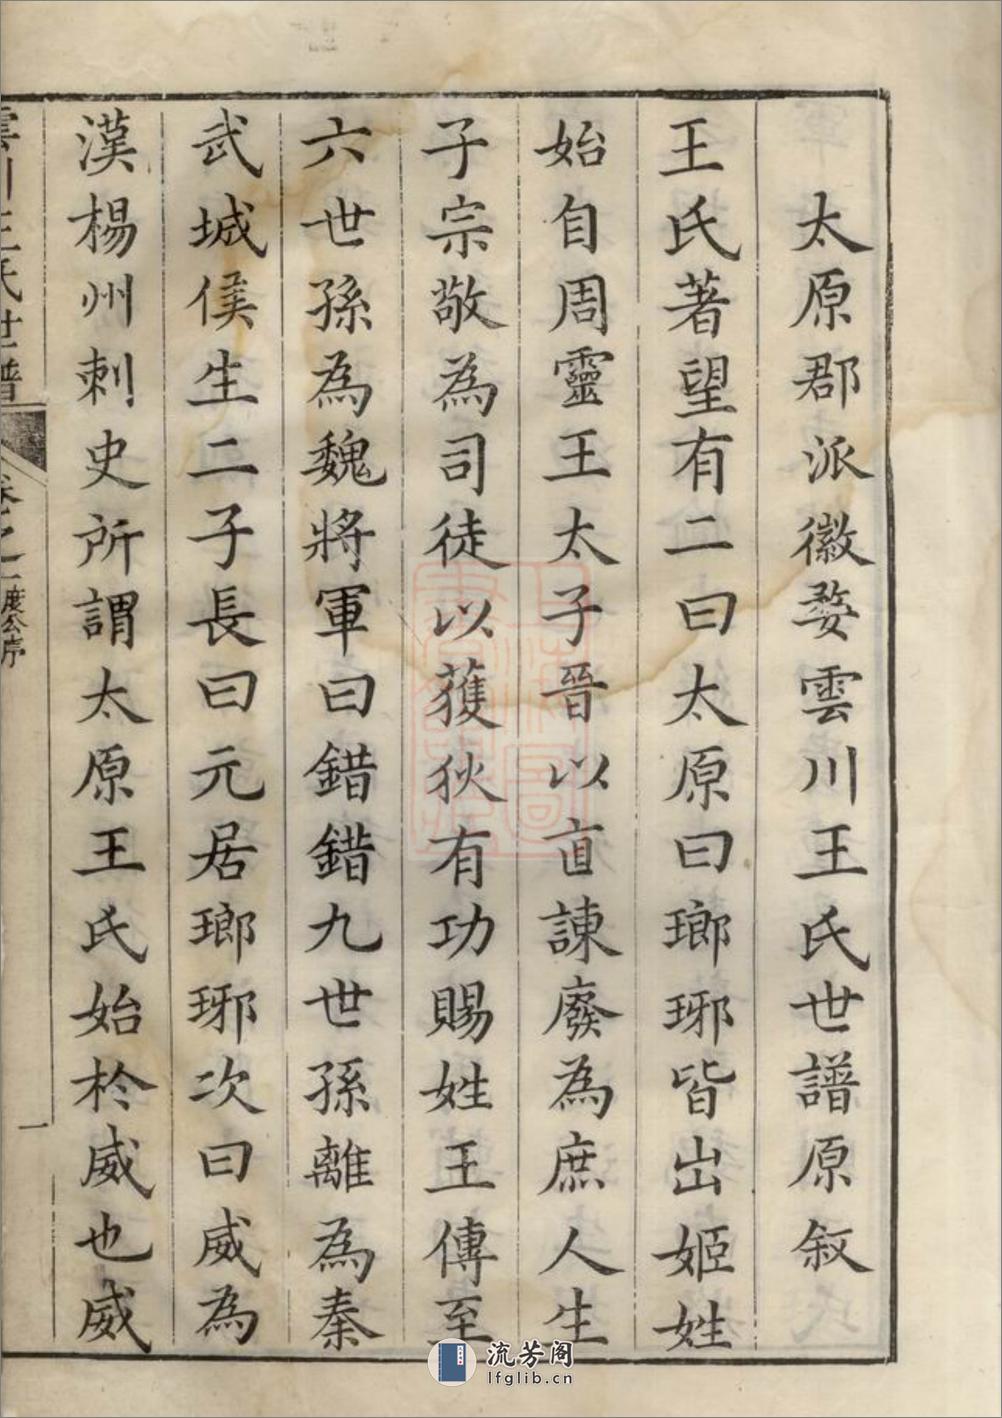 太原郡派徽婺雲川王氏世譜原叙
王氏著望有二曰太原曰瑯琊皆出姬姓
始自周靈王太子晉以直諫廢為庶人生
子宗敬為司徒以獲狄有功賜姓王傳至
六世孫為魏將軍曰錯錯九世孫離為秦
武城侯生二子長曰元居瑯琊次曰威為
漢楊州刺史所謂太原王氏始於威也威
雲川王氏世譜
卷之一度公序
一
流芳阁
lfglib.cn